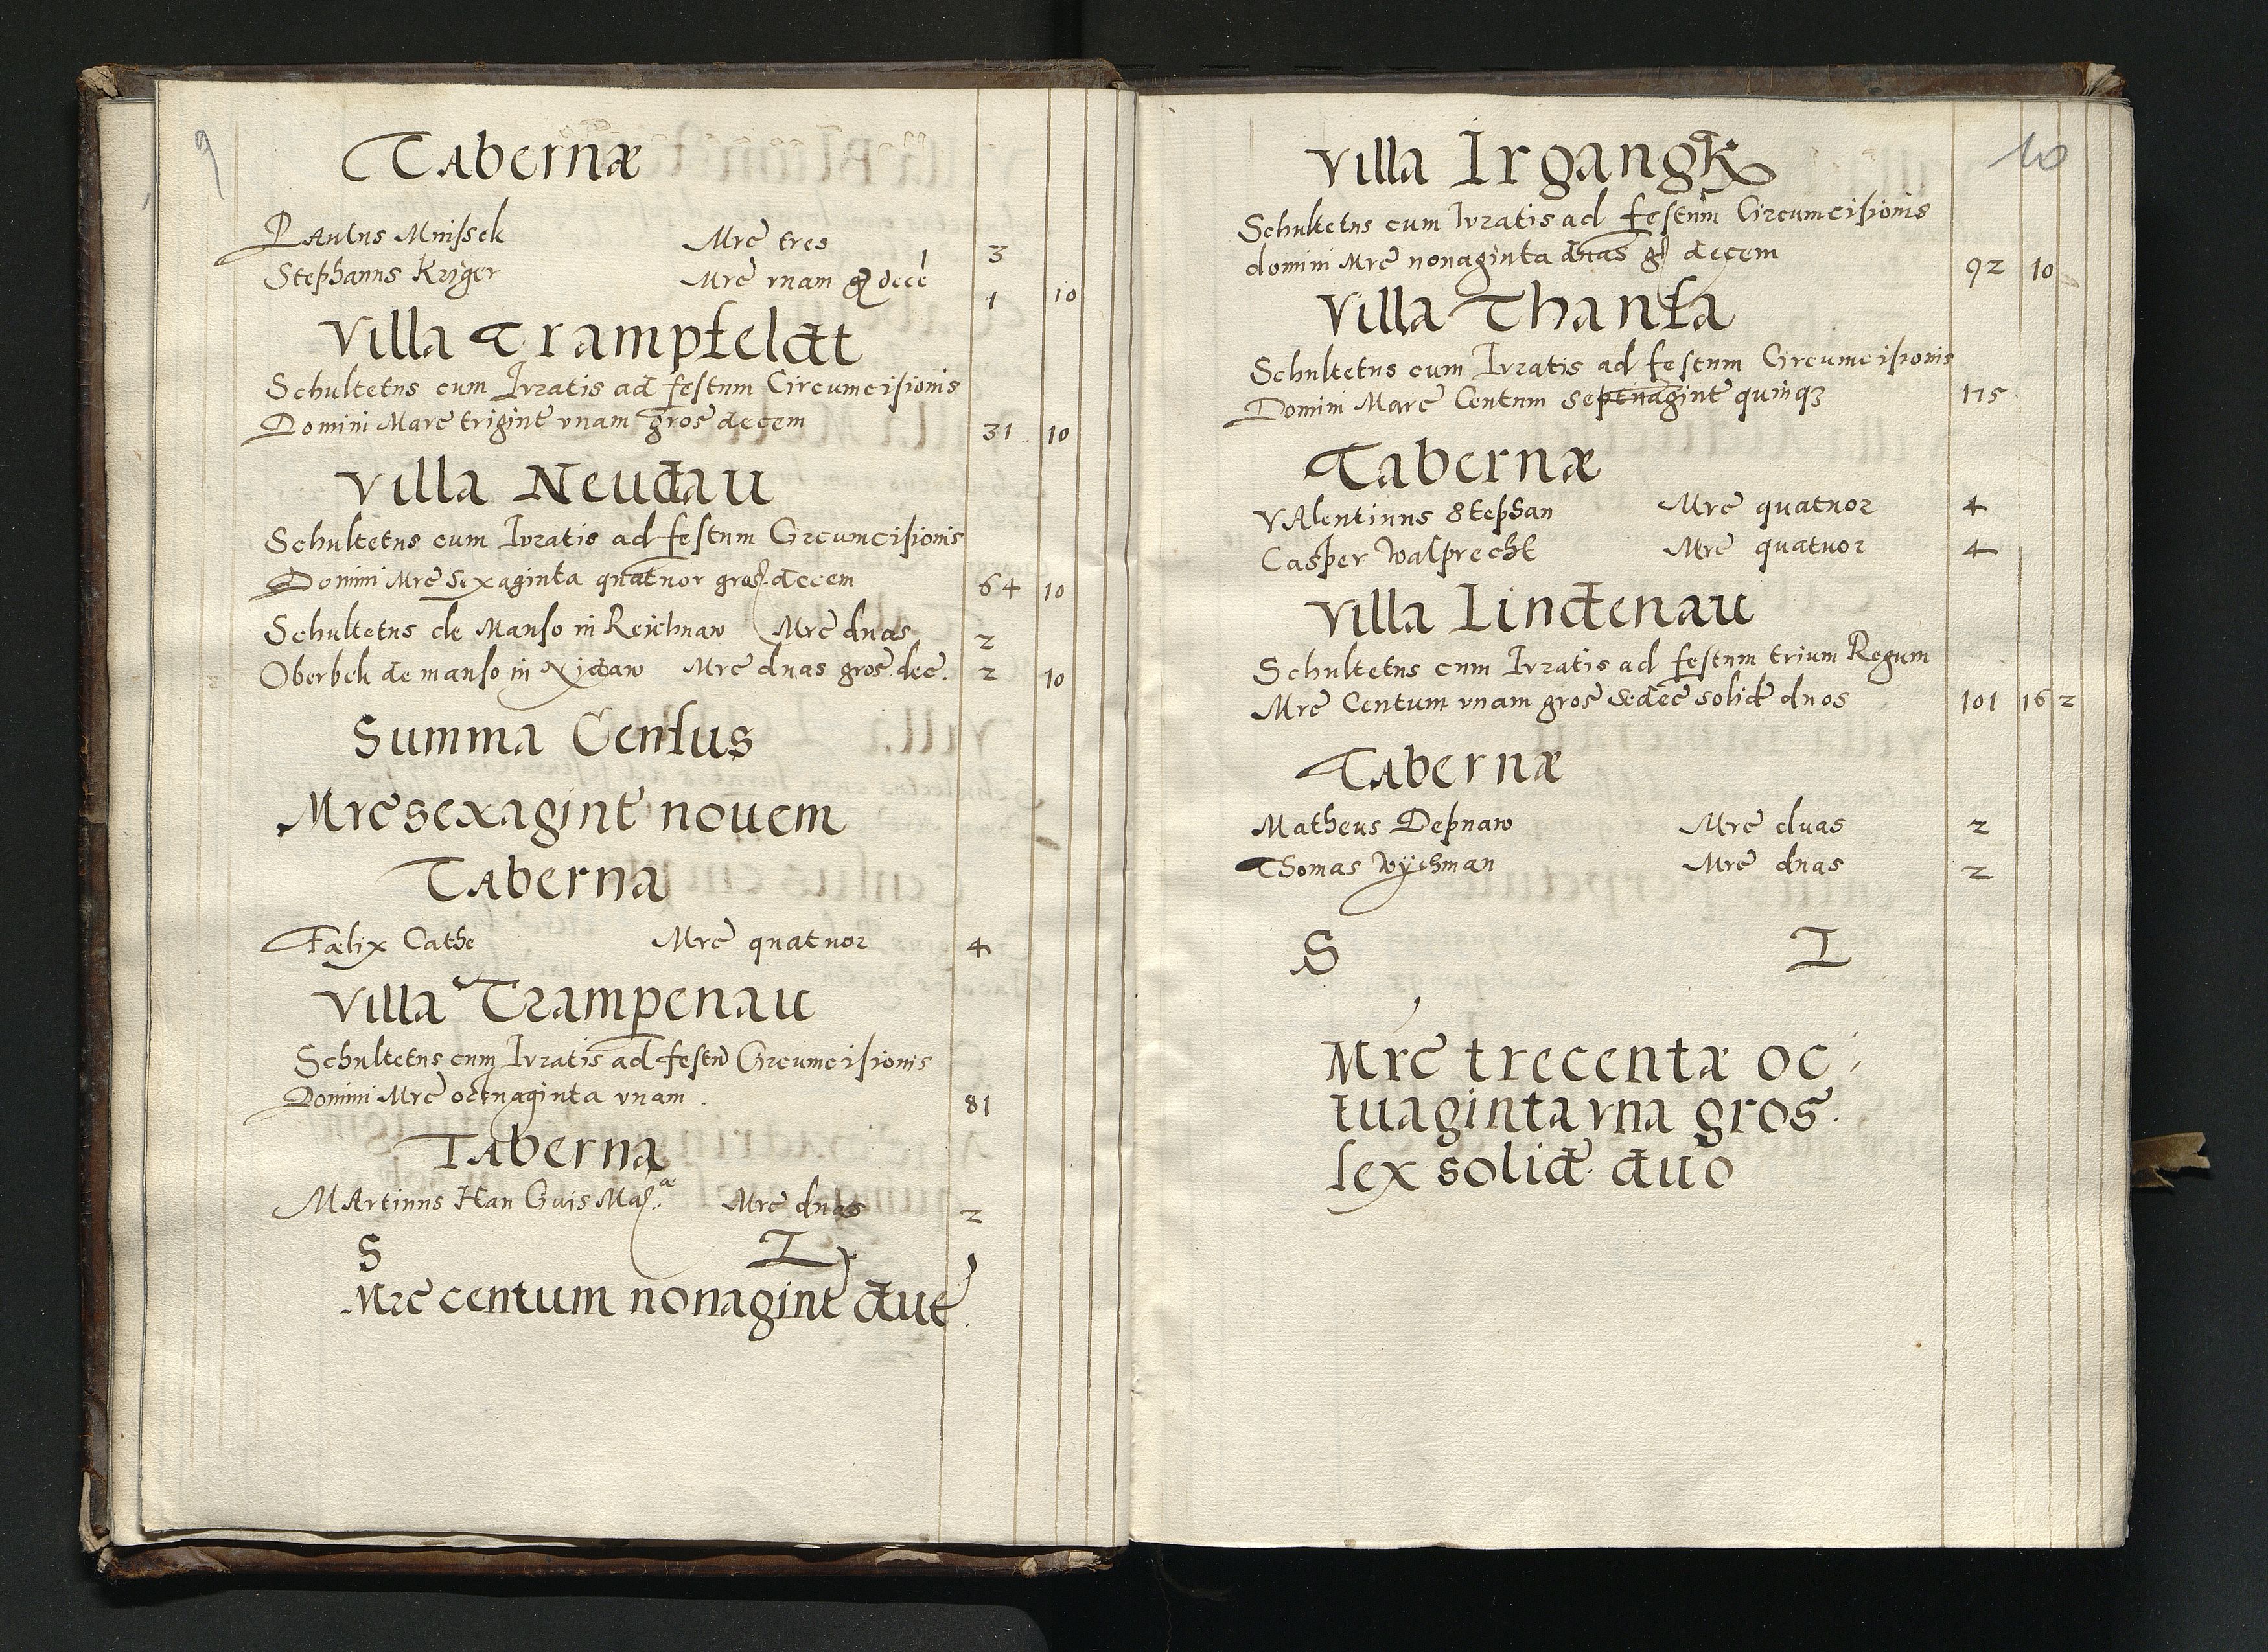 9
Tabernæ
Paulus Mnissek Mrc̄ tres 3
Stephanus Kriger Mrc̄ vnam gͬ decē 1 10
Villa Trampfeldt
Schultetus cum Iuratis ad festum Circumcisionis
Domini Marc̄ trigint̄ vnam gros̄ decem 31 10
Villa Neudau
Schultetus cum Iuratis ad festum Circumcisionis
Domini Mrc̄ Sexaginta quatuor gros̄ decem 64 10
Schultetus de Manso in Reichnaw Mrc̄ duas 2
Oberbek de manso in Nidaw Mrc̄ duas gros̄ dec̄. 2 10
Summa Census
Mrc̄ sexagint̄ nouem
Taberna
Fælix Cathe Mrc̄ quatuor 4
Villa Trampenau
Schultetus cum Iuratis ad festū Circumcisionis
Domini Mrc̄ octuaginta vnam. 81
Taberna
Martinus Han Ciuis Maͬ:ͣᵉ Mrc̄ duas 2
S I
Mrc̄ centum nonagint̄ duē.
10
Villa Irgangk
Schultetus cum Iuratis ad festum Circumcisionis
domini Mrc̄ nonaginta duas gͬ decem 92 10
Villa Thansa
Schultetus cum Iuratis ad festum Circumcisionis
Domini Marc̄ Centum septuagint̄ quinqꝫ 175
Tabernæ
Valentinus Stephan Mrc̄ quatuor 4
Casper Walprecht Mrc̄ quatuor 4
Villa Lindenau
Schultetus cum Iuratis ad festum trium Regum
Mrc̄ Centum vnam gros̄ sedec̄ solid̄ duos 101 16 2
Tabernæ
Matheus Depnaw Mrc̄ duas 2
Thomas Wÿchman Mrc̄ duas 2
S I
Mrc̄ trecentæ oc
tuaginta vna gros̄.
sex solid̄ duo